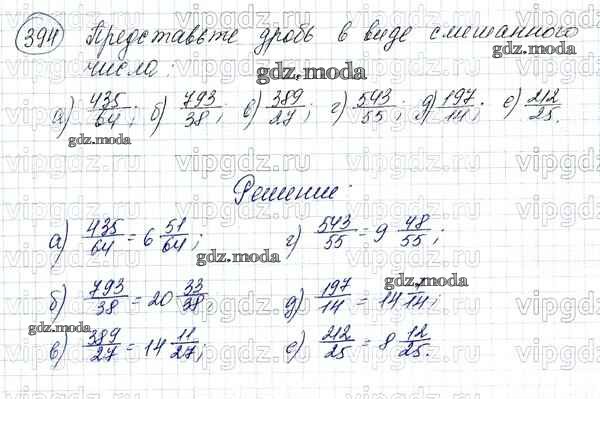 394 Представьте дробь в виде смешанного
числа:
а) 435/64; б) 793/38; в) 389/27; г) 543/55; д) 197/14; е) 212/25.
Решение:
а) 435/64 = 6 51/64; г) 543/55 = 9 48/55;
б) 793/38 = 20 33/38; д) 197/14 = 14 1/14;
в) 389/27 = 14 11/27; е) 212/25 = 8 12/25.
gdz.moda
gdz.moda
gdz.moda
gdz.moda
gdz.moda
gdz.moda
vipgdz.ru